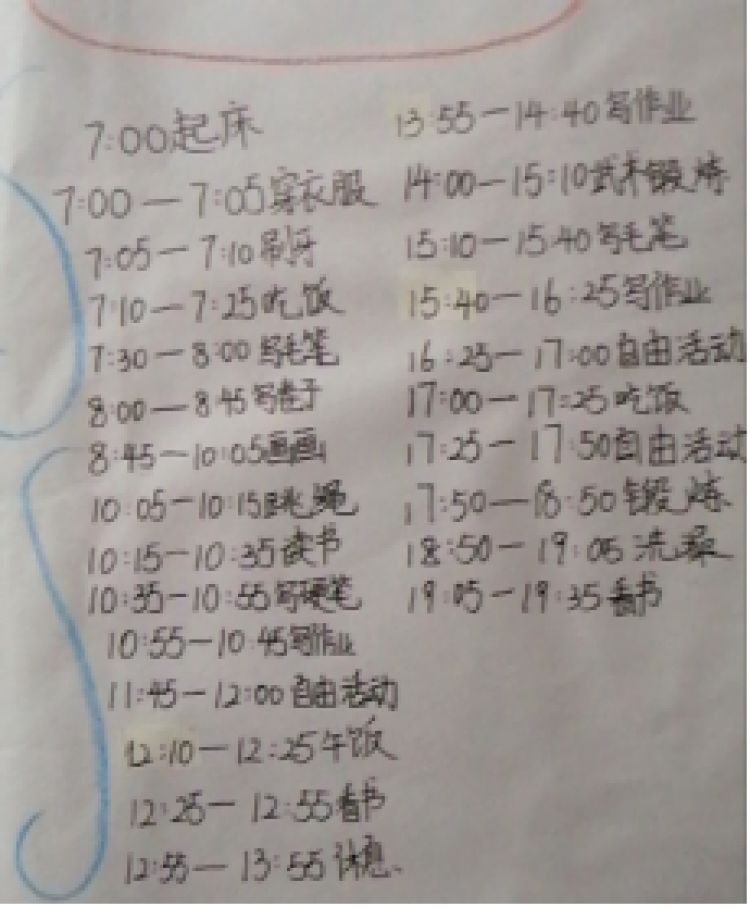 7:00起床
7:00—7:05穿衣服
7:05—7:10刷牙
7:10—7:25吃饭
7:30—8:00写毛笔
8:00—8:45写卷子
8:45—10:05画画
10:05—10:15跳绳
10:15—10:35读书
10:35—10:55写硬笔
10:55—10:45写作业
11:45—12:00自由活动
12:10—12:25午饭
12:25—12:55看书
12:55—13:55休息、
13:55—14:40写作业
14:00—15:10武术锻炼
15:10—15:40写毛笔
15:40—16:25写作业
16:25—17:00自由活动
17:00—17:25吃饭
17:25—17:50自由活动
17:50—18:50锻炼
18:50—19:05洗澡
19:05—19:35看书